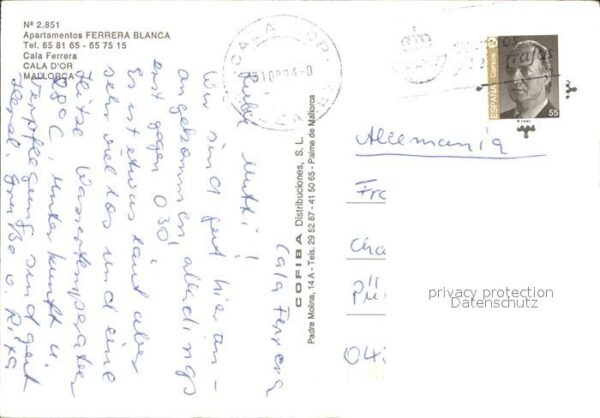 Nº 2.851
Apartamentos FERRERA BLANCA
Tel. 65 81 65 - 65 75 15
Cala Ferrera
CALA D'OR
MALLORCA
Cala Ferrera
Liebe Mutti!
Wir sind gut hier an-
angekommen allerdings
erst gegen 0³⁰.
Es ist etwas laut aber
sehr viel los und eine
Hitze Wassertemperatur
28°C, Unterkunft u.
Verpflegung sind gut
Herzl. Grüße v. Rixa
COFIBA Distribuciones, S. L.
Padre Molina, 14 A - Tels. 29 52 87 - 41 50 65 - Palma de Mallorca
CALA D'OR
ESPAÑA
Correos
55
Allemania
Fr
Cha
privacy protection
Datenschutz